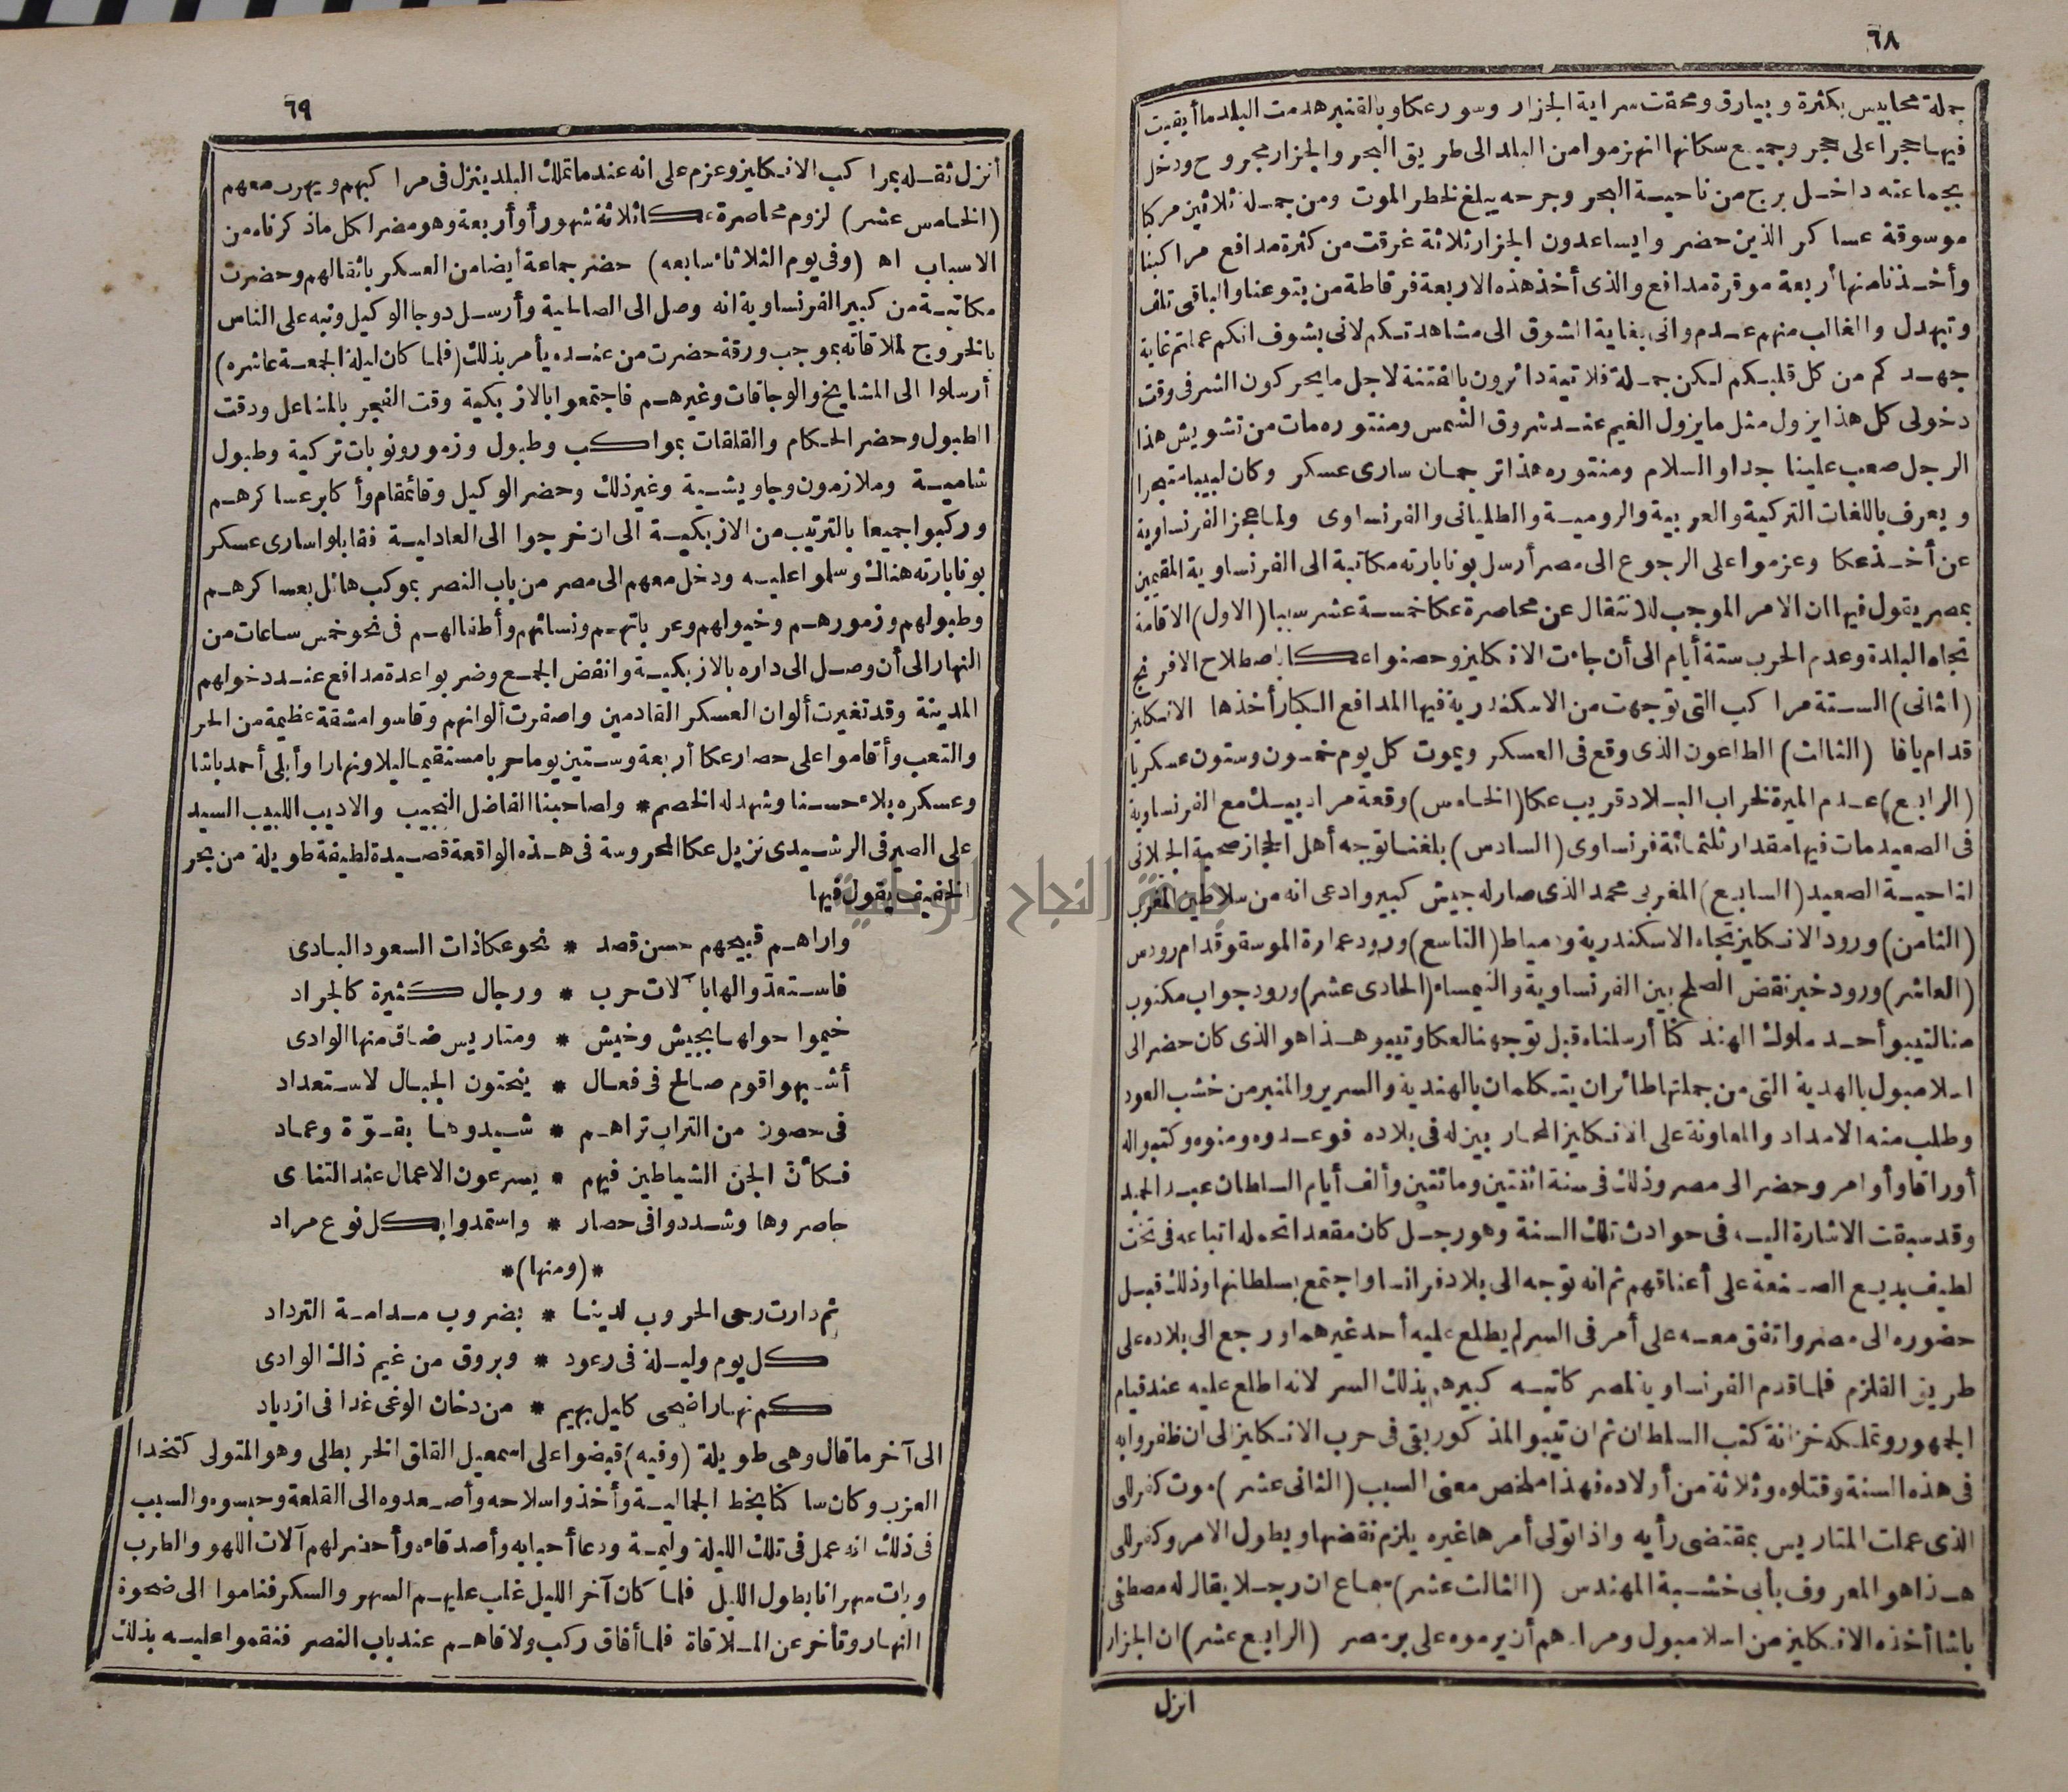 ٦٨
جملة محابيس بكثرة وبيارق ومحقت سراية الجزار وسور عكا وبالقنبر هدمت البلد ما أبقيت
فيها حجرا على حجر وجميع سكانها انهزموا من البلد الى طريق البحر والجزار مجروح ودخل
بجماعته داخل برج من ناحية البحر وجرحه يبلغ لخطر الموت ومن جملة ثلاثين مركبا
موسوقة عساكر الذين حضروا يساعدون الجزار ثلاثة غرقت من كثرة مدافع مراكبنا
وأخذنا منها أربعة موقرة مدافع والذى أخذ هذه الاربعة فرقاطة من بتوعنا والباقى تلف
وتبهدل والغالب منهم عدم وانى بغاية الشوق الى مشاهدتكم لانى بشوف انكم عملتم غاية
جهدكم من كل قلبكم لكن جملة فلاتية دائرون بالفتنة لاجل ما يحركون الشر فى وقت
دخولى كل هذا يزول مثل ما يزول الغيم عند شروق الشمس ومنتوره مات من تشويش هذا
الرجل صعب علينا جدا والسلام ومنتوره هذا ترجمان سارى عسكر وكان لبيبا متبحرا
ويعرف باللغات التركية والعربية والرومية والطليانى والفرنساوى ولما عجز الفرنساوية
عن أخذ عكا وعزموا على الرجوع الى مصر أرسل بونابارته مكاتبة الى الفرنساوية المقيمين
بمصر يقول فيها ان الامر الموجب للانتقال عن محاصرة عكا خمسة عشر سببا (الاول) الاقامة
تجاه البلدة وعدم الحرب ستة أيام الى أن جاءت الانكليز وحصنوا عكا باصطلاح الافرنج
(الثانى) الستة مراكب التى توجهت من الاسكندرية فيها المدافع الكبار أخذها الانكليز
قدام يافا (الثالث) الطاعون الذى وقع فى العسكر ويموت كل يوم خمسون وستون عسكريا
(الرابع) عدم الميرة لخراب البلاد قريب عكا (الخامس) وقعة مراد بيك مع الفرنساوية
فى الصعيد مات فيها مقدار ثلثمائة فرنساوى (السادس) بلغنا توجه أهل الحجاز صحبة الجلانى
لناحية الصعيد (السابع) المغربى محمد الذى صار له جيش كبير وادعى انه من سلاطين المغرب
(الثامن) ورود الانكليز تجاه الاسكندرية ودمياط (التاسع) ورود عمارة الموسقو قدام رودس
(العاشر) ورود خبر نقض الصلح بين الفرنساوية والنيمساه (الحادى عشر) ورود جواب مكتوب
منا لتيبو أحد ملوك الهند كنا أرسلناه قبل توجهنا لعكا وتيبو هذا هو الذى كان حضر الى
اسلامبول بالهدية التى من جملتها طائران يتكلمان بالهندية والسرير والمنبر من خشب العود
وطلب منه الامداد والمعاونة على الانكليز المحاربين له فى بلاده فوعدوه ومنوه وكتبوا له
أوراقا وأوامر وحضر الى مصر وذلك فى سنة اثنتين ومائتين وألف أيام السلطان عبد الحميد
وقد سبقت الاشارة اليه فى حوادث تلك السنة وهو رجل كان مقعدا تحمله اتباعه فى تخت
لطيف بديع الصنعة على أعناقهم ثم انه توجه الى بلاد فرانسا واجتمع بسلطانها وذلك قبل
حضوره الى مصر واتفق معه على أمر فى السر لم يطلع عليه أحد غيرهما ورجع الى بلاده على
طريق القلزم فلما قدم الفرنساوية لمصر كاتبه كبيرهم بذلك السر لانه اطلع عليه عند قيام
الجمهور وتملكه خزانة كتب السلطان ثم ان تيبو المذكور بقى فى حرب الانكليز الى ان ظفروا به
فى هذه السنة وقتلوه وثلاثة من أولاده فهذا ملخص معنى السبب (الثانى عشر) موت كفرللى
الذى عملت المتاريس بمقتضى رأيه واذا تولى أمرها غيره يلزم نقضها ويطول الامر وكفرللى
هذا هو المعروف بأبى خشبة المهندس (الثالث عشر) سماع ان رجلا يقال له مصطفى
باشا أخذه الانكليز من اسلامبول ومرادهم أن يرموه على بر مصر (الرابع عشر) ان الجزار
انزل
٦٩
أنزل ثقله بمراكب الانكليز وعزم على انه عندما تملك البلد ينزل فى مراكبهم ويهرب معهم
(الخامس عشر) لزوم محاصرة عكا ثلاثة شهور أو أربعة وهو مضر لكل ما ذكرناه من
الاسباب اه (وفى يوم الثلاثاء سابعه) حضر جماعة أيضا من العسكر باثقالهم وحضرت
مكاتبة من كبير الفرنساوية انه وصل الى الصالحية وأرسل دوجا الوكيل ونبه على الناس
بالخروج لملاقاته بموجب ورقة حضرت من عنده يأمر بذلك (فلما كان ليلة الجمعة عاشره)
أرسلوا الى المشايخ والوجاقات وغيرهم فاجتمعوا بالازبكية وقت الفجر بالمشاعل ودقت
الطبول وحضر الحكام والقلقات بمواكب وطبول وزمور ونوبات تركية وطبول
شامية وملازمون وجاويشية وغير ذلك وحضر الوكيل وقائمقام وأكابر عساكرهم
وركبوا جميعا بالترتيب من الازبكية الى ان خرجوا الى العادلية فقابلوا سارى عسكر
بونابارته هناك وسلموا عليه ودخل معهم الى مصر من باب النصر بموكب هائل بعساكرهم
وطبولهم وزمورهم وخيولهم وعرباتهم ونسائهم وأطفالهم فى نحو خمس ساعات من
النهار الى أن وصل الى داره بالازبكية وانفض الجمع وضربوا عدة مدافع عند دخولهم
المدينة وقد تغيرت ألوان العسكر القادمين واصفرت ألوانهم وقاسوا مشقة عظيمة من الحر
والتعب وأقاموا على حصار عكا أربعة وستين يوما حربا مستقيما ليلا ونهارا وأبلى أحمد باشا
وعسكره بلاء حسنا وشهد له الخصم * ولصاحبنا الفاضل النجيب والاديب اللبيب السيد
على الصيرفى الرشيدى نزيل عكا المحروسة فى هذه الواقعة قصيدة لطيفة طويلة من بحر
الخفيف يقول فيها
جامعة النجاح الوطنية
واراهم قبيحهم حسن قصد * نحو عكا ذات السعود البادى
فاستعدوا لها بآلات حرب * ورجال كثيرة كالجراد
خيموا حولها بجيش وخيش * ومتاريس ضاق منها الوادى
أشبهوا قوم صالح فى فعال * ينحتون الجبال لاستعداد
فى حصون من التراب تراهم * شيدوها بقوّة وعماد
فكأنّ الجن الشياطين فيهم * يسرعون الاعمال عند التنادى
حاصروها وشددوا فى حصار * واستمدوا بكل نوع مراد
*(ومنها)*
ثم دارت رحى الحروب لدينا * بضروب مدامة الترداد
كل يوم وليلة فى رعود * وبروق من غيم ذاك الوادى
كم نهار أضحى كليل بهيم * من دخان الوغى غدا فى ازدياد
الى آخر ما قال وهى طويلة (وفيه) قبضوا على اسمعيل القلق الخربطلى وهو المتولى كتخدا
العزب وكان ساكنا بخط الجمالية وأخذوا سلاحه وأصعدوه الى القلعة وحبسوه والسبب
فى ذلك انه عمل فى تلك الليلة وليمة ودعا أحبابه وأصدقاءه وأحضر لهم آلات اللهو والطرب
وبات سهرانا بطول الليل فلما كان آخر الليل غلب عليهم السهر والسكر فناموا الى ضحوة
النهار وتأخر عن الملاقاة فلما أفاق ركب ولاقاهم عند باب النصر فنقموا عليه بذلك